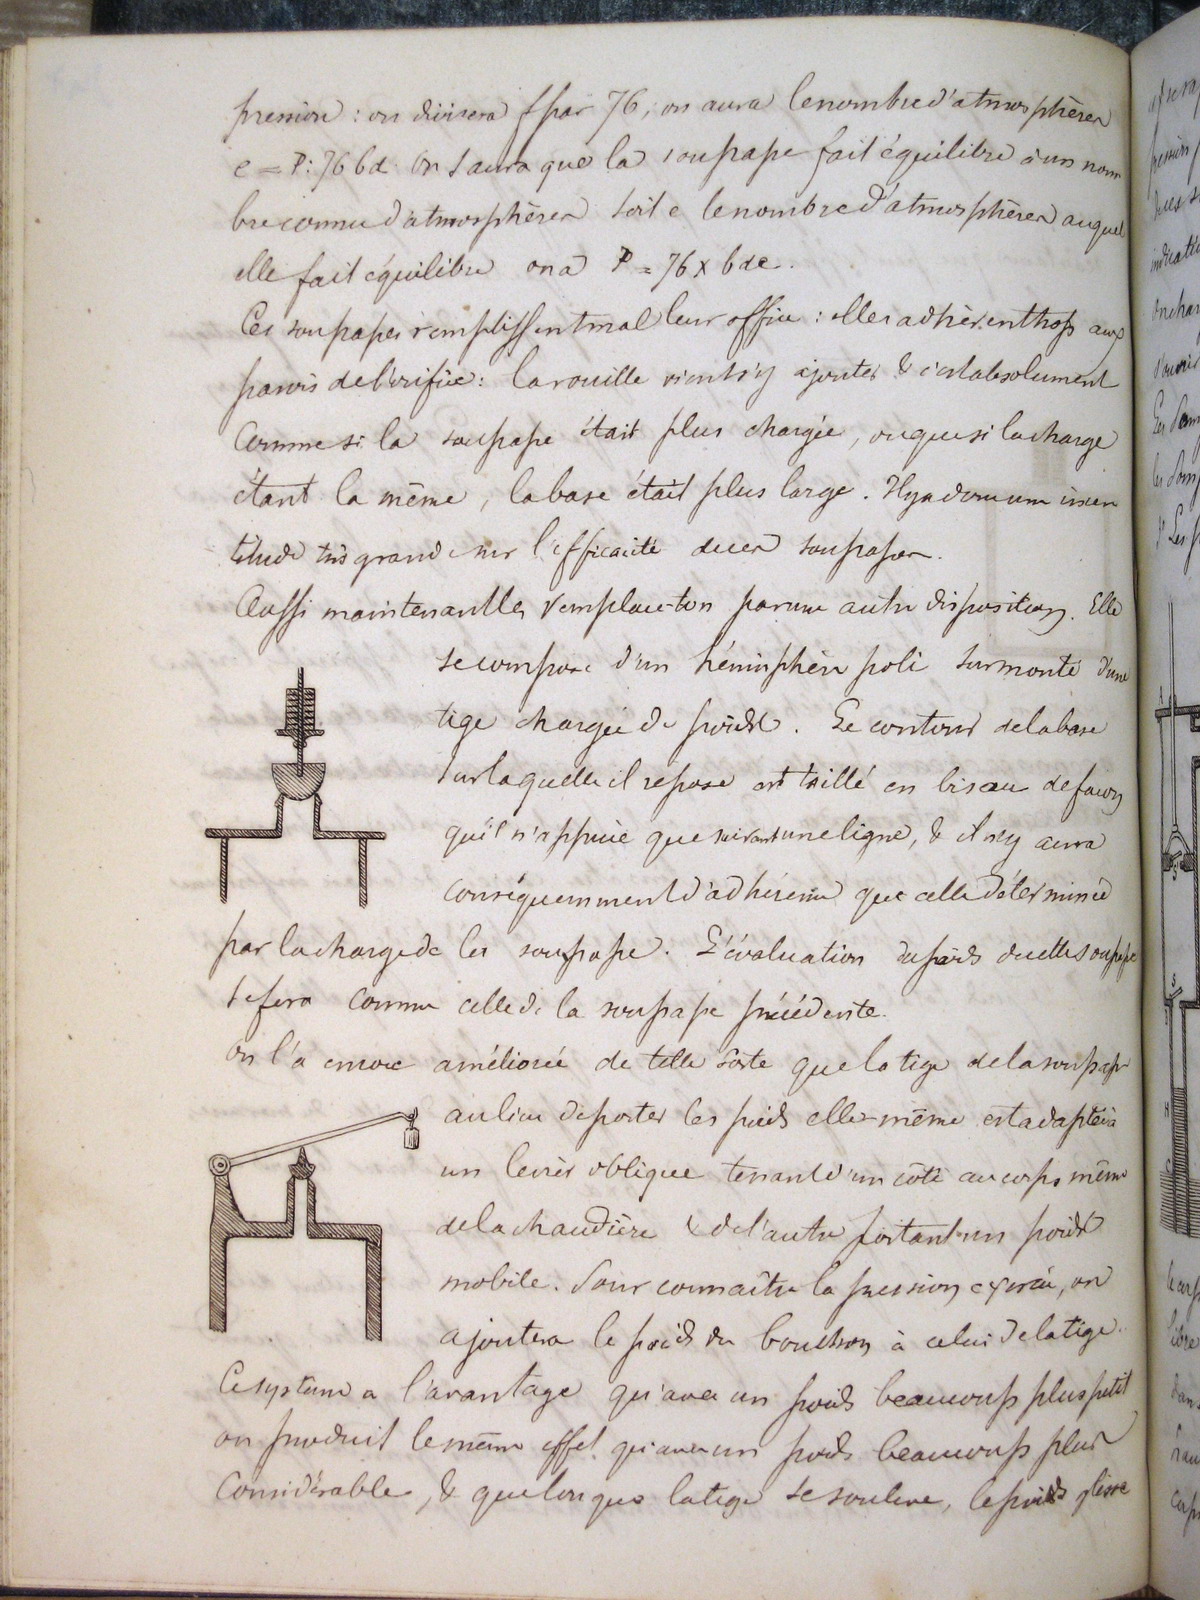 pression : on divisera f par 76, on aura le nombre d'atmosphères
e = P : 76 bd. On saura que la soupape fait équilibre à un nom
bre connu d'atmosphères soit e le nombre d'atmosphères auquel
elle fait équilibre on a P = 76 x bde.
Ces soupapes remplissent mal leur office : elles adhèrent trop aux
parois de l'orifice : la rouille vient s'y ajouter & c'est absolument
comme si la soupape était plus chargée, ou que si la charge
étant la même, la base était plus large. Il y a donc une incer
titude très grande sur l'efficacité de ces soupapes.
Aussi maintenant les remplace-t-on par une autre disposition. Elle
se compose d'un hémisphère poli surmonté d'une
tige chargée de poids. Le contour de la base
sur laquelle il repose est taillé en biseau de façon
qu'il n'appuie que suivant une ligne, & il n'y aura
conséquemment d'adhérence que celle déterminée
par la charge de la soupape. L'évaluation du poids de cette soupape
se fera comme celle de la soupape précédente.
on l'a encore améliorée de telle sorte que la tige de la soupape
au lieu de porter les poids elle-même est adaptée à
un levier oblique tenant d'un côté au corps même
de la chaudière & de l'autre portant un poids
mobile. Pour connaître la pression exercée, on
ajoutera le poids du bouchon à celui de la tige.
Ce système a l'avantage qu'avec un poids beaucoup plus petit
on produit le même effet qu'avec un poids beaucoup plus
considérable, & que lorsque la tige se soulève, le poids glisse